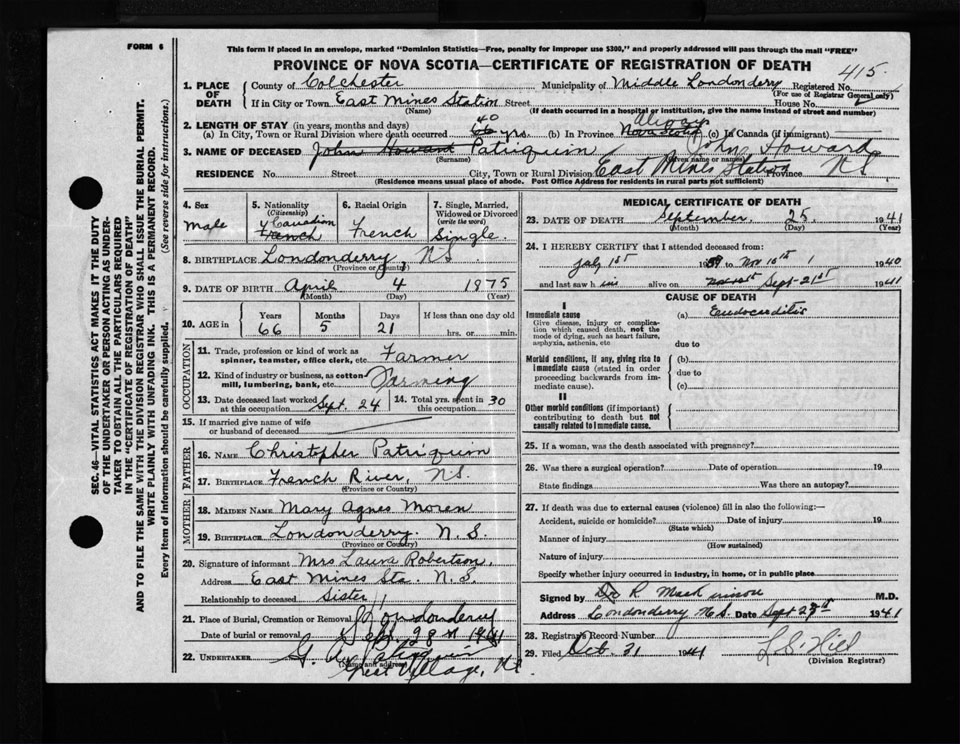 FORM 6
This form if placed in an envelope, marked "Dominion Statistics—Free, penalty for improper use $300," and properly addressed will pass through the mail "FREE"
PROVINCE OF NOVA SCOTIA—CERTIFICATE OF REGISTRATION OF DEATH
415
1. PLACE OF DEATH County of Colchester Municipality of Middle Londonderry Registered No.
(For use of Registrar General only)
If in City or Town East Mines Station Street House No.
(Name) (If death occurred in a hospital or institution, give the name instead of street and number)
2. LENGTH OF STAY (in years, months and days)
(a) In City, Town or Rural Division where death occurred 40 66 yrs. (b) In Province Always Nova Scotia (c) In Canada (if immigrant)
3. NAME OF DECEASED John Howard Patriquin John Howard
(Surname) (Given name or names)
RESIDENCE No. Street City, Town or Rural Division East Mines Station Province N.S.
(Residence means usual place of abode. Post Office Address for residents in rural parts not sufficient)
4. Sex
Male
5. Nationality (Citizenship)
Canadian
French
6. Racial Origin
French
7. Single, Married, Widowed or Divorced (write the word)
Single
8. BIRTHPLACE Londonderry, N.S.
(Province or Country)
9. DATE OF BIRTH April 4 1875
(Month) (Day) (Year)
10. AGE in Years Months Days If less than one day old
66 5 21 hrs. or min.
OCCUPATION
11. Trade, profession or kind of work as spinner, teamster, office clerk, etc. Farmer
12. Kind of industry or business, as cotton mill, lumbering, bank, etc. Farming
13. Date deceased last worked at this occupation Sept. 24 14. Total yrs. spent in this occupation 30
15. If married give name of wife or husband of deceased
FATHER
16. NAME Christopher Patriquin
17. BIRTHPLACE French River, N.S.
(Province or Country)
MOTHER
18. MAIDEN NAME Mary Agnes Moren
19. BIRTHPLACE Londonderry N.S.
(Province or Country)
20. Signature of informant Mrs Laura Robertson.
Address East Mines Sta. N.S.
Relationship to deceased Sister
21. Place of Burial, Cremation or Removal Londonderry
Date of burial or removal Sept. 28 1941
22. UNDERTAKER G. Patriquin
(Name and address)
Great Village, N.S.
MEDICAL CERTIFICATE OF DEATH
23. DATE OF DEATH September 25 1941
(Month) (Day) (Year)
24. I HEREBY CERTIFY that I attended deceased from:
July 1st 1939 to Nov 10th 1940
and last saw him alive on Sept-21st 1941
CAUSE OF DEATH
I
Immediate cause
Give disease, injury or complication which caused death, not the mode of dying, such as heart failure, asphyxia, asthenia, etc
(a) Endocarditis
due to
Morbid conditions, if any, giving rise to immediate cause (stated in order proceeding backwards from immediate cause).
(b)
due to
(c)
II
Other morbid conditions (if important) contributing to death but not causally related to immediate cause.
25. If a woman, was the death associated with pregnancy?
26. Was there a surgical operation? Date of operation 19
State findings Was there an autopsy?
27. If death was due to external causes (violence) fill in also the following:—
Accident, suicide or homicide? Date of injury 19
(State which)
Manner of injury
(How sustained)
Nature of injury
Specify whether injury occurred in industry, in home, or in public place
Signed by Dr R MacKinnon M.D.
Address Londonderry N.S. Date Sept 27th 1941
28. Registrar's Record Number
29. Filed Oct. 31 1941 L.S. Hill
(Division Registrar)
SEC. 46—VITAL STATISTICS ACT MAKES IT THE DUTY
OF THE UNDERTAKER OR PERSON ACTING AS UNDERTAKER TO OBTAIN ALL THE PARTICULARS REQUIRED
IN THE "CERTIFICATE OF REGISTRATION OF DEATH"
AND TO FILE THE SAME WITH THE DIVISION REGISTRAR WHO SHALL ISSUE THE BURIAL PERMIT.
WRITE PLAINLY WITH UNFADING INK. THIS IS A PERMANENT RECORD.
Every item of information should be carefully supplied. (See reverse side for instructions)